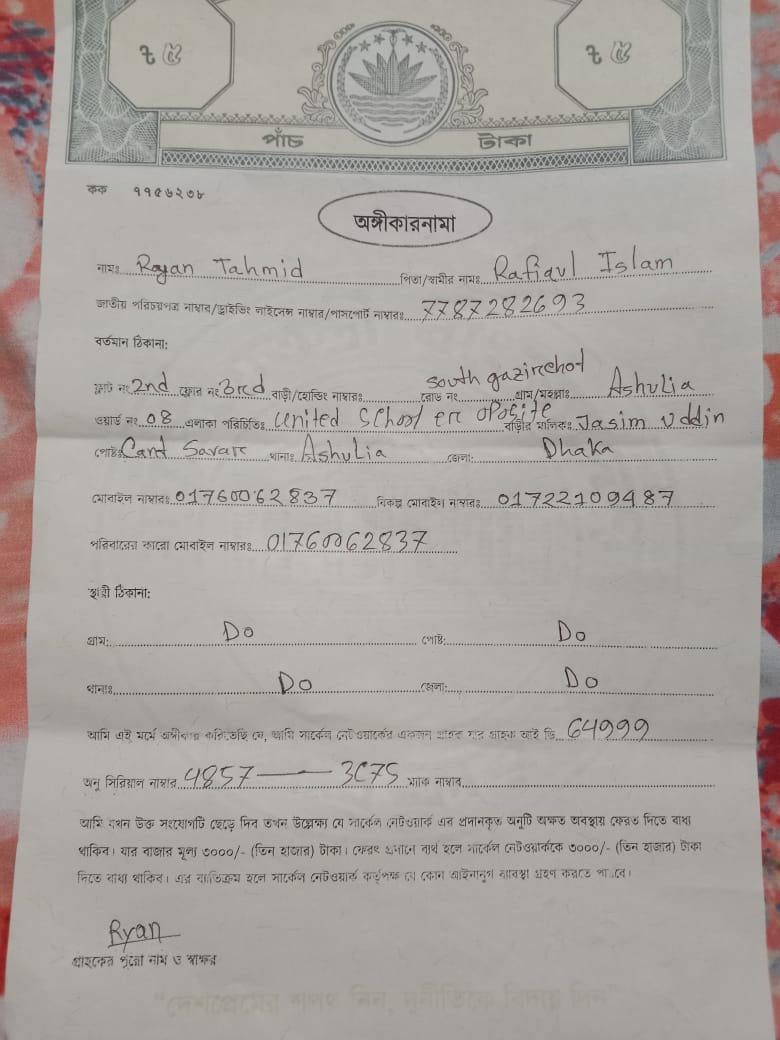 ৳ ৫ ৳ ৫
পাঁচ টাকা
কক ১৭৫৬২৩৮
অঙ্গীকারনামা
নামঃ Rayan Tahmid পিতা/স্বামীর নামঃ Rafiqul Islam
জাতীয় পরিচয়পত্র নাম্বার/ড্রাইভিং লাইসেন্স নাম্বার/পাসপোর্ট নাম্বারঃ 7787282693
বর্তমান ঠিকানা:
ফ্লাট নং 2nd ফ্লোর নং 3rd বাড়ী/হোল্ডিং নাম্বারঃ রোড নং south gazirchot গ্রাম/মহল্লাঃ Ashulia
ওয়ার্ড নং 08 এলাকা পরিচিতিঃ United School er oposite বাড়ীর মালিকঃ Jasim Uddin
পোষ্টঃ Cant Savar থানাঃ Ashulia জেলা: Dhaka
মোবাইল নাম্বারঃ 01760062837 বিকল্প মোবাইল নাম্বারঃ 01722109487
পরিবারের কারো মোবাইল নাম্বারঃ 01760062837
স্থায়ী ঠিকানা:
গ্রাম: Do পোষ্ট: Do
থানাঃ Do জেলা: Do
আমি এই মর্মে অঙ্গীকার করিতেছি যে, আমি সার্কেল নেটওয়ার্কের একজন গ্রাহক যার গ্রাহক আই ডি 64999
অনু সিরিয়াল নাম্বার 4857 — 3C75 ম্যাক নাম্বার
আমি যখন উক্ত সংযোগটি ছেড়ে দিব তখন উল্লেক্ষ্য যে সার্কেল নেটওয়ার্ক এর প্রদানকৃত অনুটি অক্ষত অবস্থায় ফেরত দিতে বাধ্য
থাকিব। যার বাজার মূল্য ৩০০০/- (তিন হাজার) টাকা। ফেরৎ প্রদানে ব্যর্থ হলে সার্কেল নেটওয়ার্ককে ৩০০০/- (তিন হাজার) টাকা
দিতে বাধ্য থাকিব। এর ব্যতিক্রম হলে সার্কেল নেটওয়ার্ক কর্তৃপক্ষ যে কোন আইনানুগ ব্যবস্থা গ্রহণ করতে পারবে।
Ryan
গ্রাহকের পুরো নাম ও স্বাক্ষর
"দেশপ্রেমের শপথ নিন, দুর্নীতিকে বিদায় দিন"